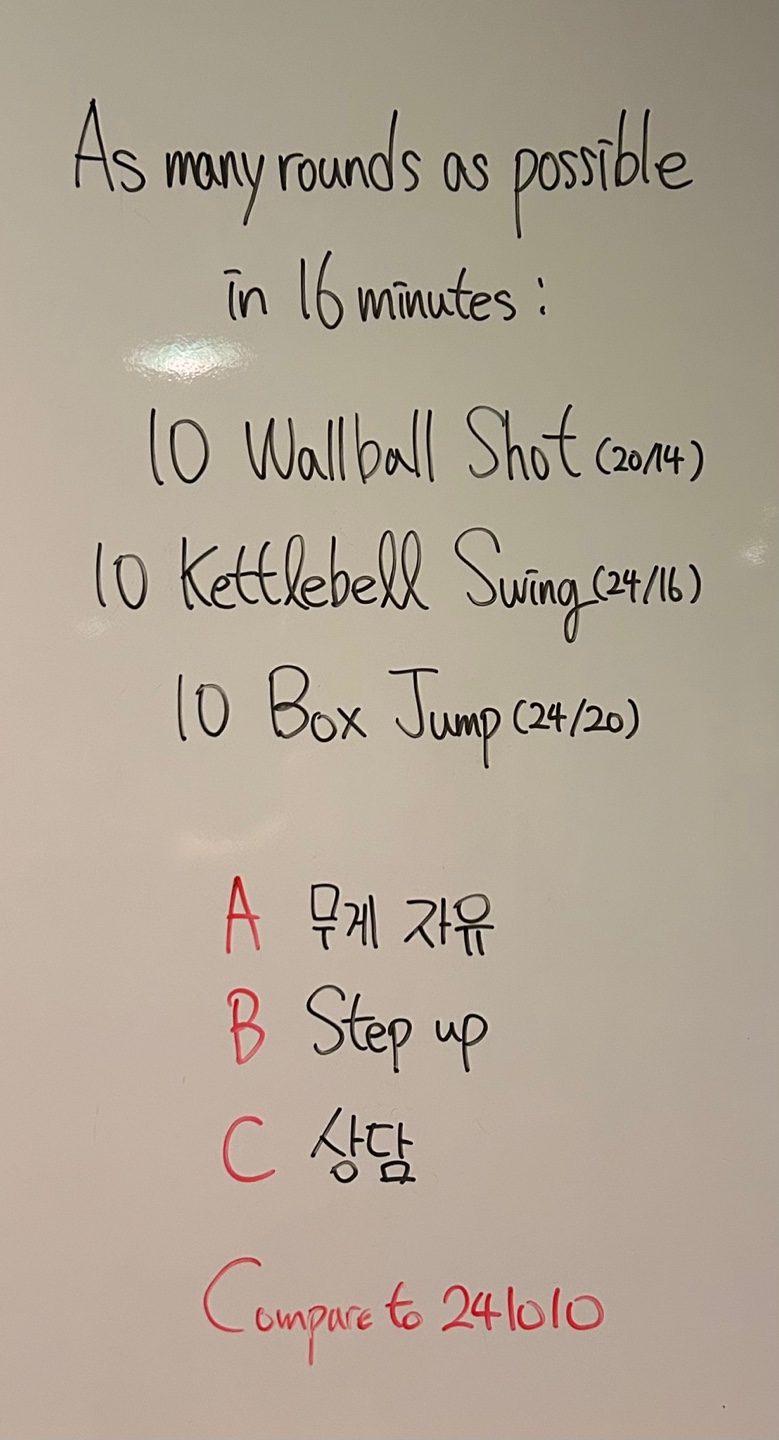 As many rounds as possible
in 16 minutes :
10 Wallball Shot (20/14)
10 Kettlebell Swing (24/16)
10 Box Jump (24/20)
A 무게 자유
B Step up
C 상담
Compare to 241010